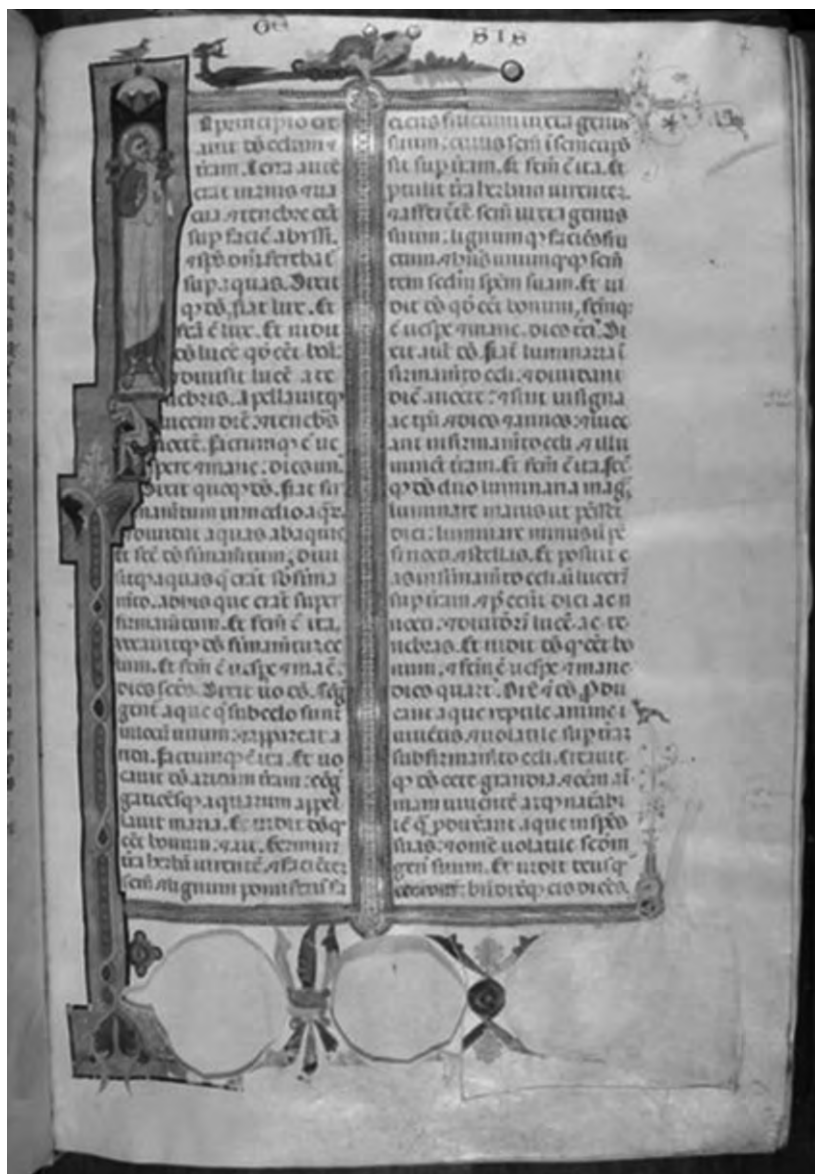 GE SIS
N principio cre
auit ds celum ⁊
t̄ram. Terra autē
erat inanis ⁊ ua
cua ⁊ tenebre erāt
sup faciē abyssi.
⁊ sp̄s dn̄i ferebat̄
sup aquas. Dixit
q; ds. fiat lux. Et
fcā ē lux. Et uidit
ds lucē qd̄ eēt boā:
⁊ diuisit lucē a te
nebris. apellauitq;
lucem diē. ⁊ tenebs
noctē. factumq; ē ue
spere ⁊ mane. dies un
Dixit quoq; ds. fiat fir
mam̄tum in medio aq̄r.
⁊ diuidat aquas ab aquis
et fec̄ ds firmam̄tum, diui
sitq; aquas q̄ erāt sb firma
m̄to. ab his que erāt super
firmam̄tum. Et fcm̄ ē ita.
uocauitq; ds firmam̄tū ce
lum. Et fcm̄ ē uespe ⁊ mane:
dies scds. Dixit uo ds. 9gre
gent̄ aque q̄ sub celo sunt
in locū unum: ⁊ appareat a
rida. factumq; ē ita. Et uo
cauit ds aridam t̄ram: 9g
gatōesq; aquarum appel
lauit maria. Et uidit ds q
eēt bonum. ⁊ ait. Germinet
t̄ra herbā uirentē ⁊ faciētē
sem̄. ⁊ lignum pomiferū fa
ciens fructum iuxta genus
suum: cuius sem̄ ī semet ip̄o
sit sup t̄ram. Et fcm̄ ē ita. Et
ptulit t̄ra herbam uirentez
⁊ afferētē sem̄ iuxta genus
suum: lignum q; faciēs fru
ctum. ⁊ hn̄s unumq;q; sem̄
tem scdm̄ spēm suam. Et ui
dit ds qd̄ eēt bonum, fcm̄q;
ē uespe ⁊ mane. dies t̄ci. Di
xit aut̄ ds. fiāt luminaria ī
firmam̄to celi. ⁊ diuidant
diē. ac nocte: ⁊ sint in signa
ac tp̄a ⁊ dies ⁊ annos: ⁊ luce
ant in firmam̄to celi. ⁊ illu
minēt t̄ram. Et fcm̄ ē ita. fec̄
q; ds duo luminaria maḡ,
luminare maius ut p̄ēsset
diei: luminare minus ut p̄e
si nocti. ⁊ stellas. Et posuit e
as in firmam̄to celi. ut lucerēt
sup t̄ram. ⁊ p̄eēnt diei ac n
octi: ⁊ diuidēnt lucē ac te
nebras. Et uidit ds q eēt bo
num, ⁊ fcm̄ ē uespe ⁊ mane
dies quart̄. Dix̄ ē ds. Produ
cant aque reptile anime ui
uentis, ⁊ uolatile sup t̄ram
sub firmam̄to celi. Creauit
q; ds cete grandia, ⁊ oēm ani
mam uiuentē atq; motabi
lē q̄ pduxant aque in spēs
suas: ⁊ omē uolatile scdm
gen̄ suum. Et uidit deus q
bonum: bn̄dixitq; eis dicēs.